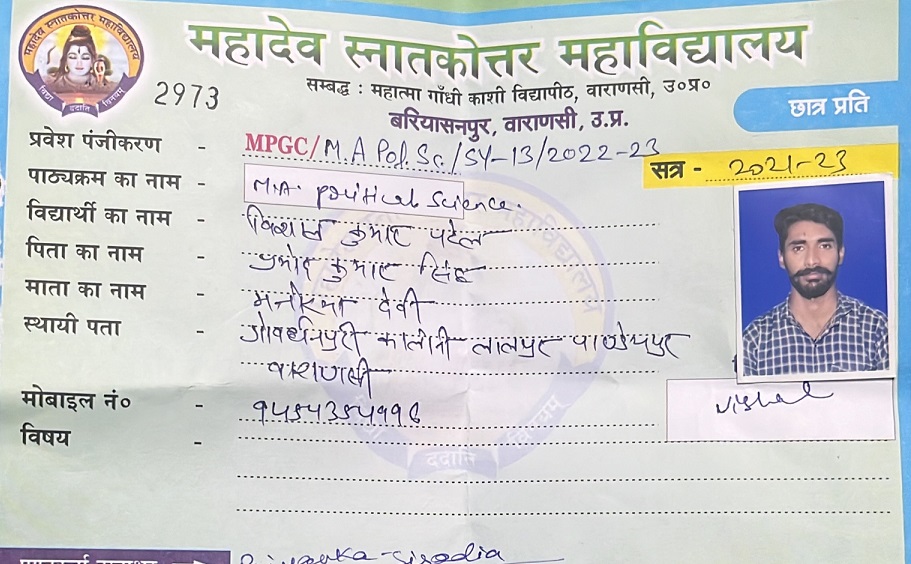 महादेव स्नातकोत्तर महाविद्यालय
महादेव स्नातकोत्तर महाविद्यालय
विद्या ददाति विनयम्
2973
सम्बद्ध : महात्मा गाँधी काशी विद्यापीठ, वाराणसी, उ०प्र०
बरियासनपुर, वाराणसी, उ.प्र.
छात्र प्रति
प्रवेश पंजीकरण - MPGC/M.A Pol. Sc./SY-13/2022-23
सत्र - 2021-23
पाठ्यक्रम का नाम - M.A. political Science.
विद्यार्थी का नाम - विशाल कुमार पटेल
पिता का नाम - प्रमोद कुमार सिंह
माता का नाम - मनोरमा देवी
स्थायी पता - गोवर्धनपुरी कालोनी लालपुर पाण्डेयपुर
वाराणसी
Vishal
मोबाइल नं० - 9454354996
विषय -
ददाति
Sisodia